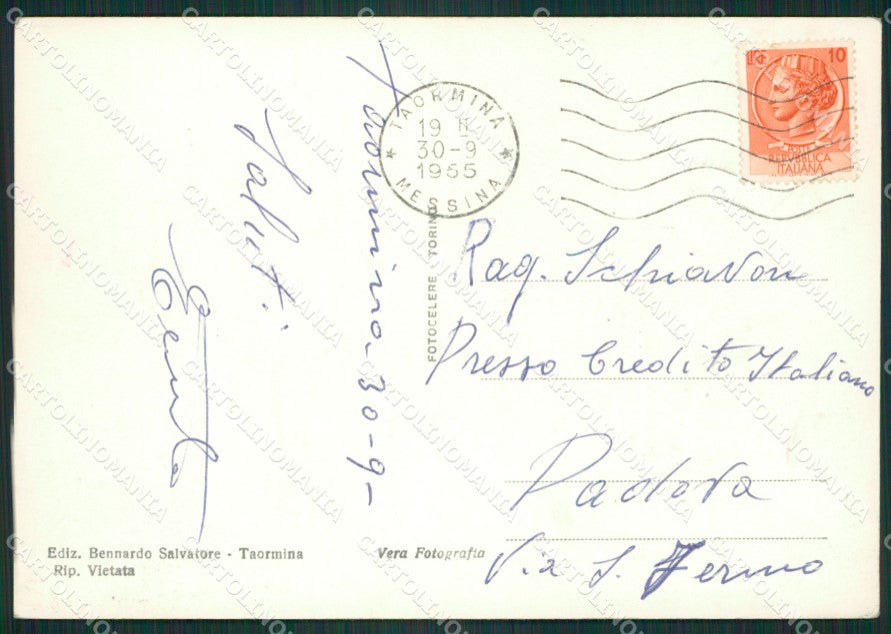 Taormina 30-9-
Saluti
TAORMINA
19 H
30-9
1955
MESSINA
10
REPVBBLICA
ITALIANA
FOTOCELERE - TORINO
Rag. Schiavon
Presso Credito Italiano
Padova
Via S. Fermo
Ediz. Bennardo Salvatore - Taormina
Rip. Vietata
Vera Fotografia
CARTOLINOMANIA